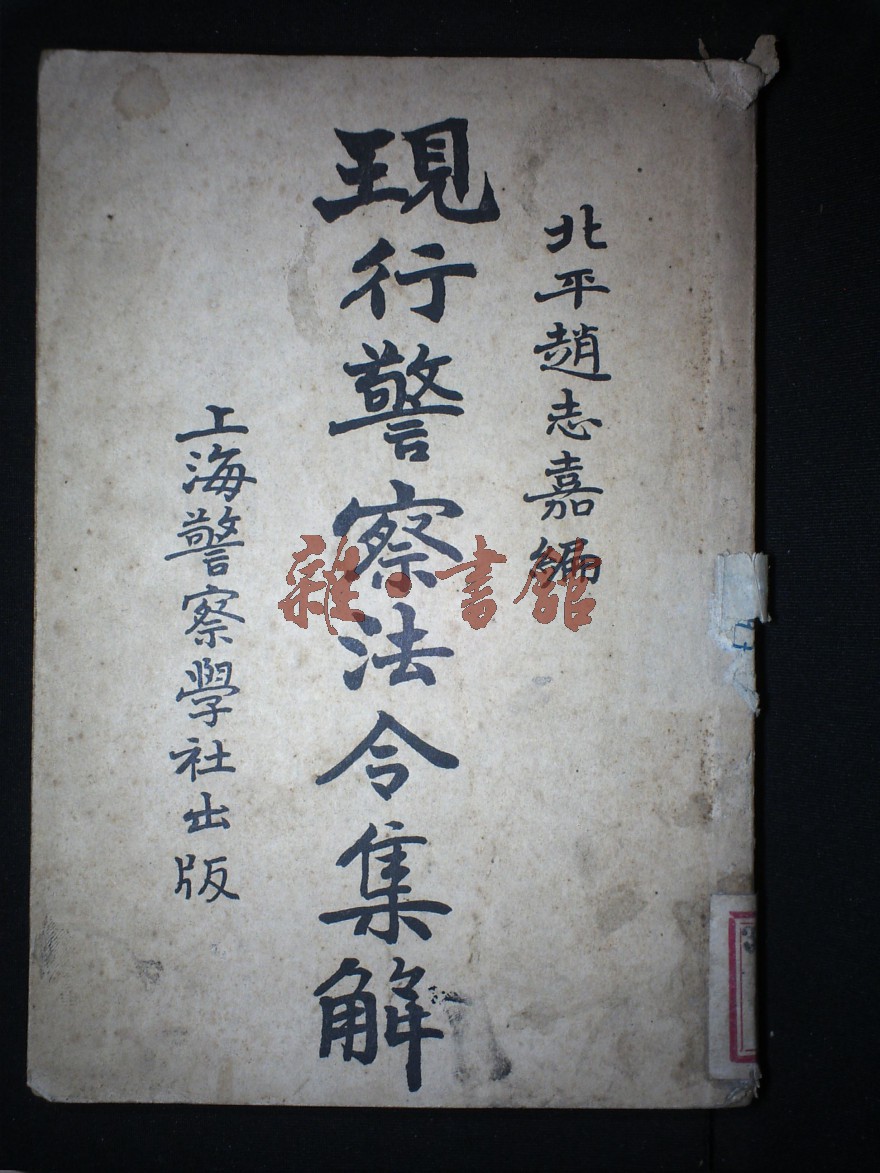 北平趙志嘉編
現行警察法令集解
上海警察學社出版
雜·書館